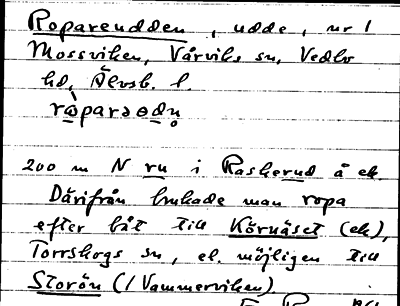 Ropareudden, udde, nr 1
Mossviken, Vårviks sn, Vedbo
hd, Älvsb. l.
200 m N ru i Raskerud å ek.
Därifrån brukade man ropa
efter båt till Körnäset (ek),
Torrskogs sn, el. möjligen till
Storön (i Vammerviken)